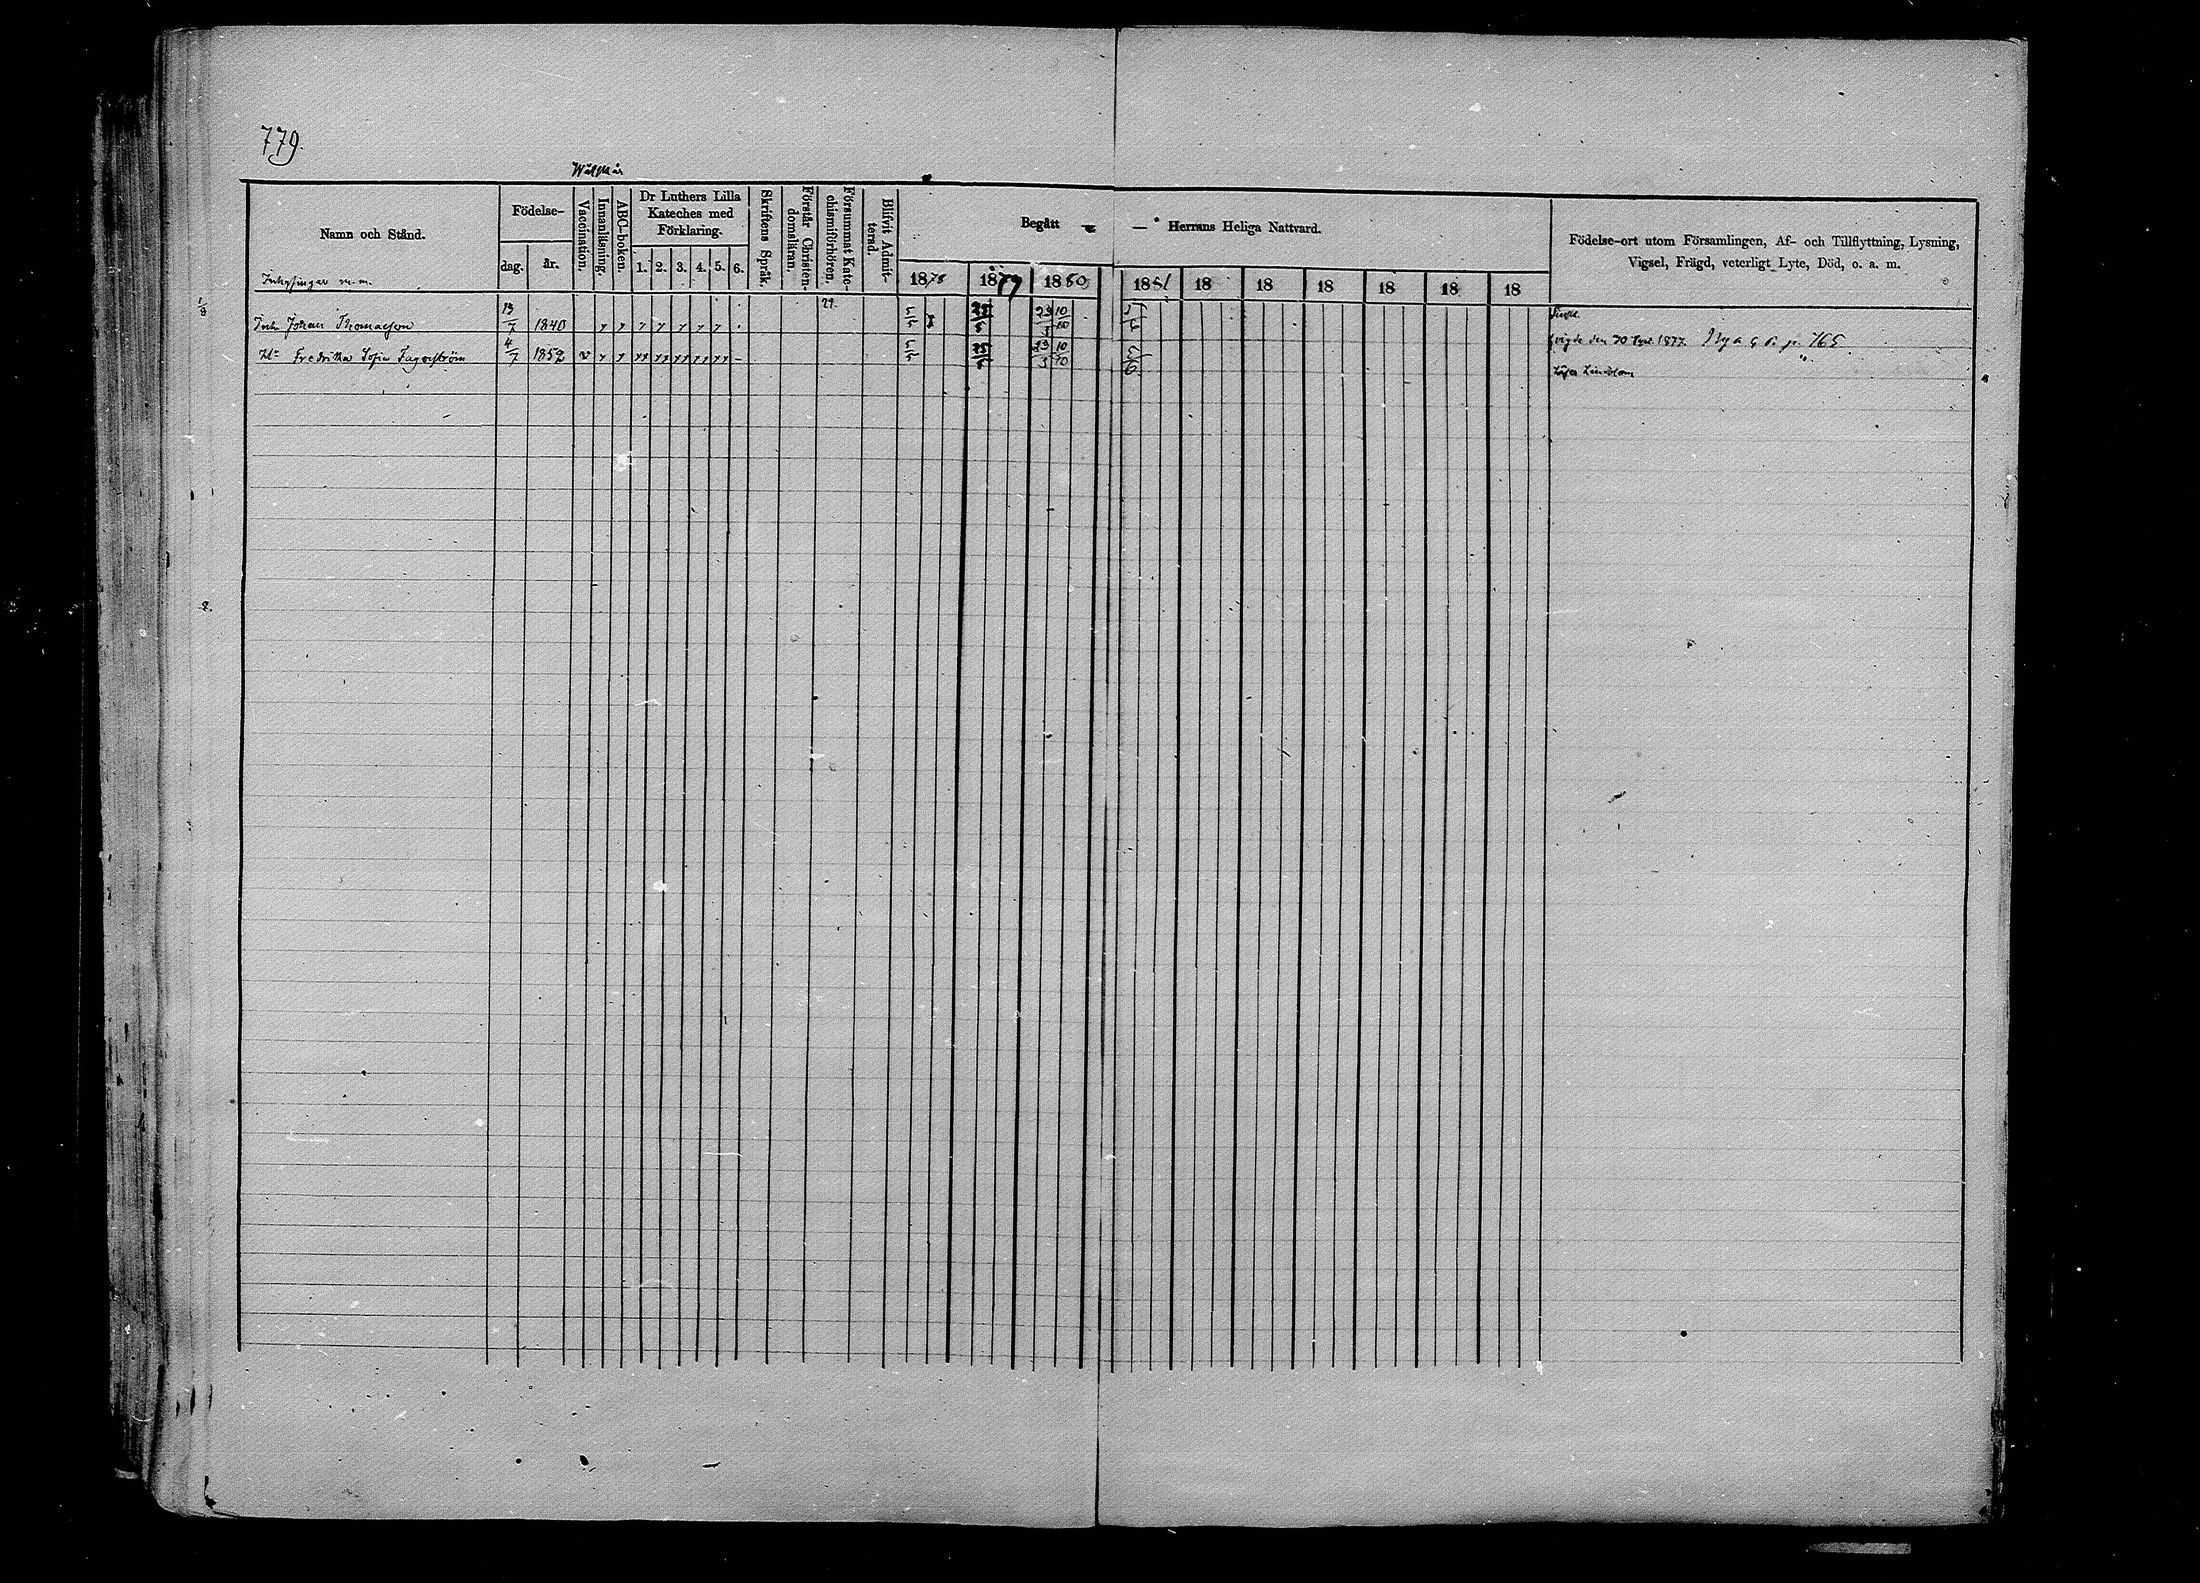 779.
Namn och Stånd.
Födelse-
dag. år.
Vaccination.
Innanläsning.
ABC-boken.
Dr Luthers Lilla
Kateches med
Förklaring.
1. 2. 3. 4. 5. 6.
Skriftens Språk.
Förstår Christen-
domsläran.
Försummat Kate-
chismiförhören.
Blifvit Admit-
terad.
Begått — Herrans Heliga Nattvard.
1878 1879 1880 1881 18 18 18 18 18 18
Födelse-ort utom Församlingen, Af- och Tillflyttning, Lysning,
Vigsel, Frägd, veterligt Lyte, Död, o. a. m.
Inhysingar m.m.
Inh. Johan Thomasson 13/7 1840 29. 5/5 25/5 23/5 10/10 5/6
H:u Fredrika Sofia Fagerström 4/7 1852 v 5/5 25/5 23/5 10/10 5/6
vigde den 30 1877. Nya p. 765